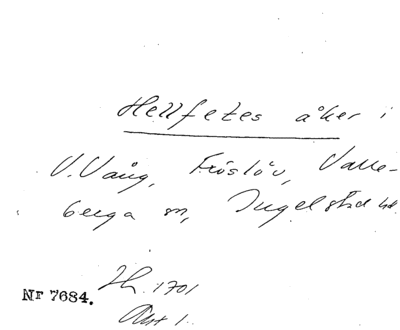 Hellfetes åker i
V. Vång, Fröslöv, Valle-
berga sn, Ingelstad hd.
Nr 7684.
1701